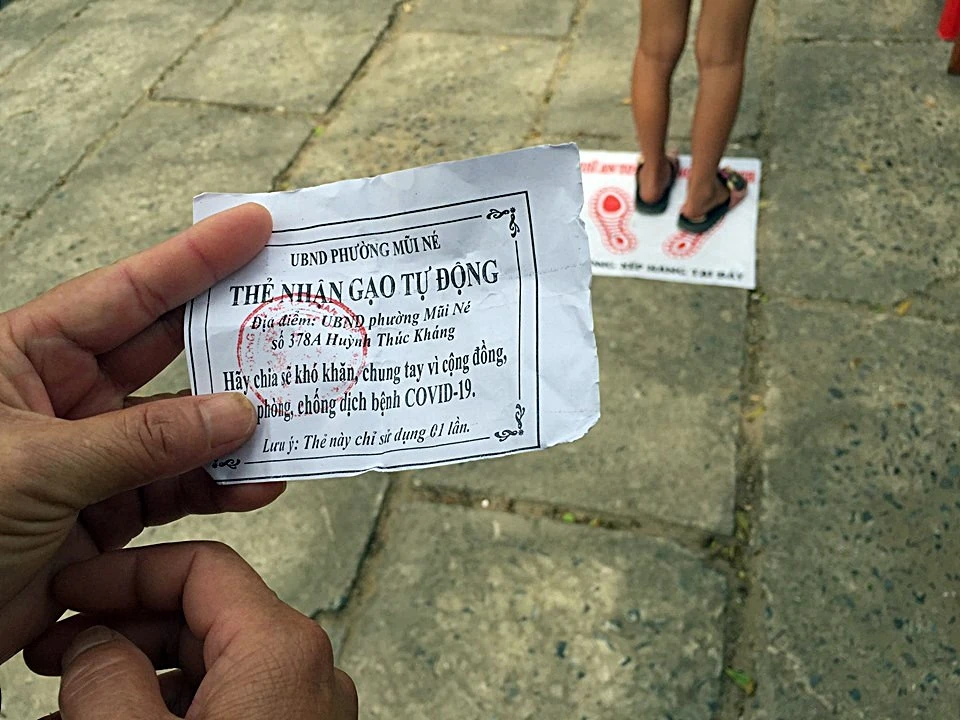 UBND PHƯỜNG MŨI NÉ
THẺ NHẬN GẠO TỰ ĐỘNG
Địa điểm: UBND phường Mũi Né
số 378A Huỳnh Thúc Kháng
Hãy chia sẽ khó khăn, chung tay vì cộng đồng,
phòng, chống dịch bệnh COVID-19.
Lưu ý: Thẻ này chỉ sử dụng 01 lần.
XẾP HÀNG TẠI ĐÂY